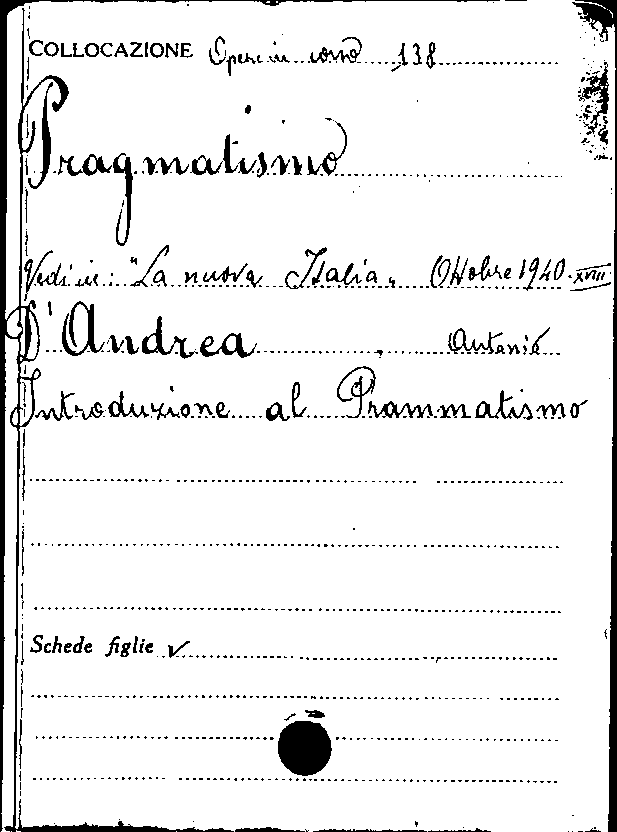 COLLOCAZIONE Opere in corso 138
Pragmatismo
Vedi in: "La nuova Italia„ Ottobre 1940-XVIII
D'Andrea, Antonio
Introduzione al Prammatismo
Schede figlie ✓